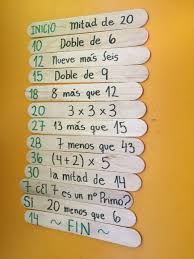 INICIO mitad de 20
10 Doble de 6
12 Nueve más Seis
15 Doble de 9
18 8 más que 12
20 3 x 3 x 3
27 13 más que 15
28 7 menos que 43
36 (4+2) x 5
30 la mitad de 14
7 ¿El 7 es un nº Primo?
SI 20 menos que 6
14 ~ FIN ~